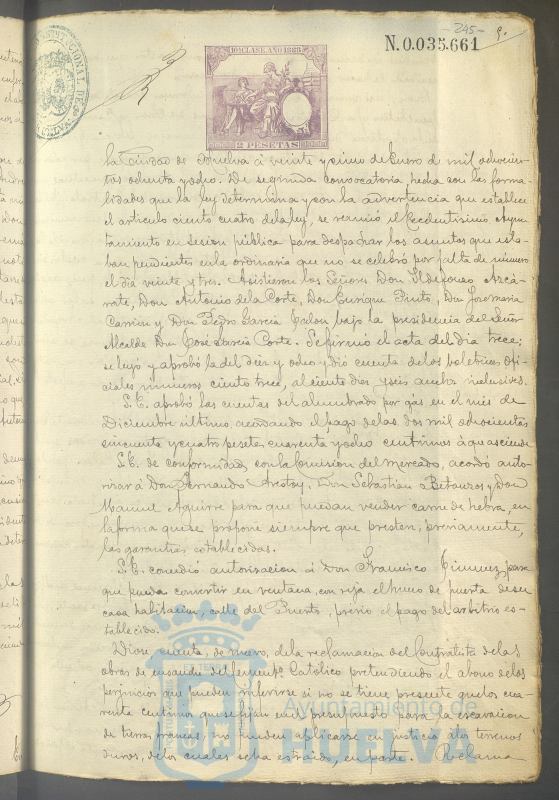 -245-
9.
N.0.035.661
10ª CLASE. AÑO 1888
2 PESETAS
la Ciudad de Huelva á veinte y cinco de Enero de mil ochocien-
tos ochenta y ocho. De segunda convocatoria, hecha con las forma-
lidades que la ley determina y con la advertencia que establece
el articulo ciento cuatro de la ley, se reunió el Excelentisimo Ayun-
tamiento en sesion pública para despachar los asuntos que esta-
ban pendientes en la ordinaria que no se celebró por falta de número
el dia veinte y tres. Asistieron los Señores Don Ildefonso Azcá-
rate, Don Antonio de la Corte, Don Enrique Pinto, Don José María
Carrion y Don Pedro García Calon bajo la presidencia del Señor
Alcalde Don José García Corte. Se firmó el acta del dia trece;
se leyó y aprobó la del diez y ocho y dió cuenta de los boletines ofi-
ciales números ciento trece, al ciento diez y seis ambos inclusives.
S.E. aprobó las cuentas del alumbrado por gas en el mes de
Diciembre último acordando el pago de las dos mil ochocientas
cincuenta y cuatro pesetas cuarenta y ocho centimos á que asciende
S.E. de conformidad con la Comision del mercado, acordó auto-
rizar á Don Fernando Arestoy, Don Sebastian Betanzos y Don
Manuel Aguirre para que puedan vender carne de hebra, en
la forma que se propone siempre que presten, previamente,
las garantias establecidas.
S.E. concedió autorizacion á Don Francisco Jimenez para
que pueda convertir en ventana, con reja el hueco de puerta de su
casa habitacion, calle del Puerto, prévio el pago del arbitrio es-
tablecido.
Diose cuenta, de nuevo, de la reclamacion del Contratista de las
obras de ensanche del Cementº Católico pretendiendo el abono de los
perjuicios que pueden inferirse si no se tiene presente que los cua-
renta centimos que se fijan en el presupuesto para la excavacion
de tierras francas, no pueden aplicarse en justicia á los terrenos
duros, de los cuales se ha estraido, en parte. Reclama
Ayuntamiento de
HUELVA